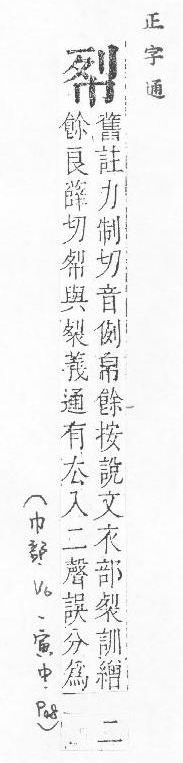 正字通
舊註力制切音例帛餘按說文衣部裂訓繒
餘良薛切與裂義通有厺入二聲誤分爲
二
(巾部 V6、寅中、)